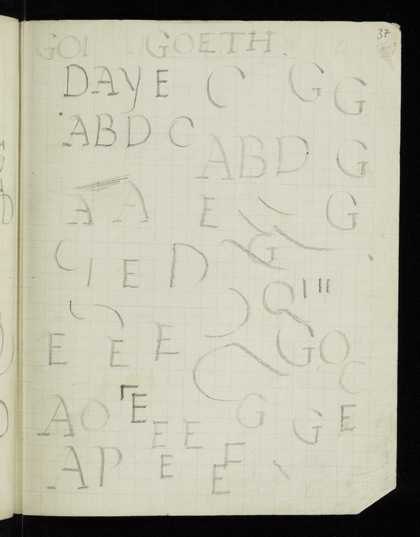 37
GOI GOETH
DAYE C G G
ABD C
ABD G
A A E G
C I E D G
Q I I I
E E E G O C
A O E G G E
E E
A P E E F